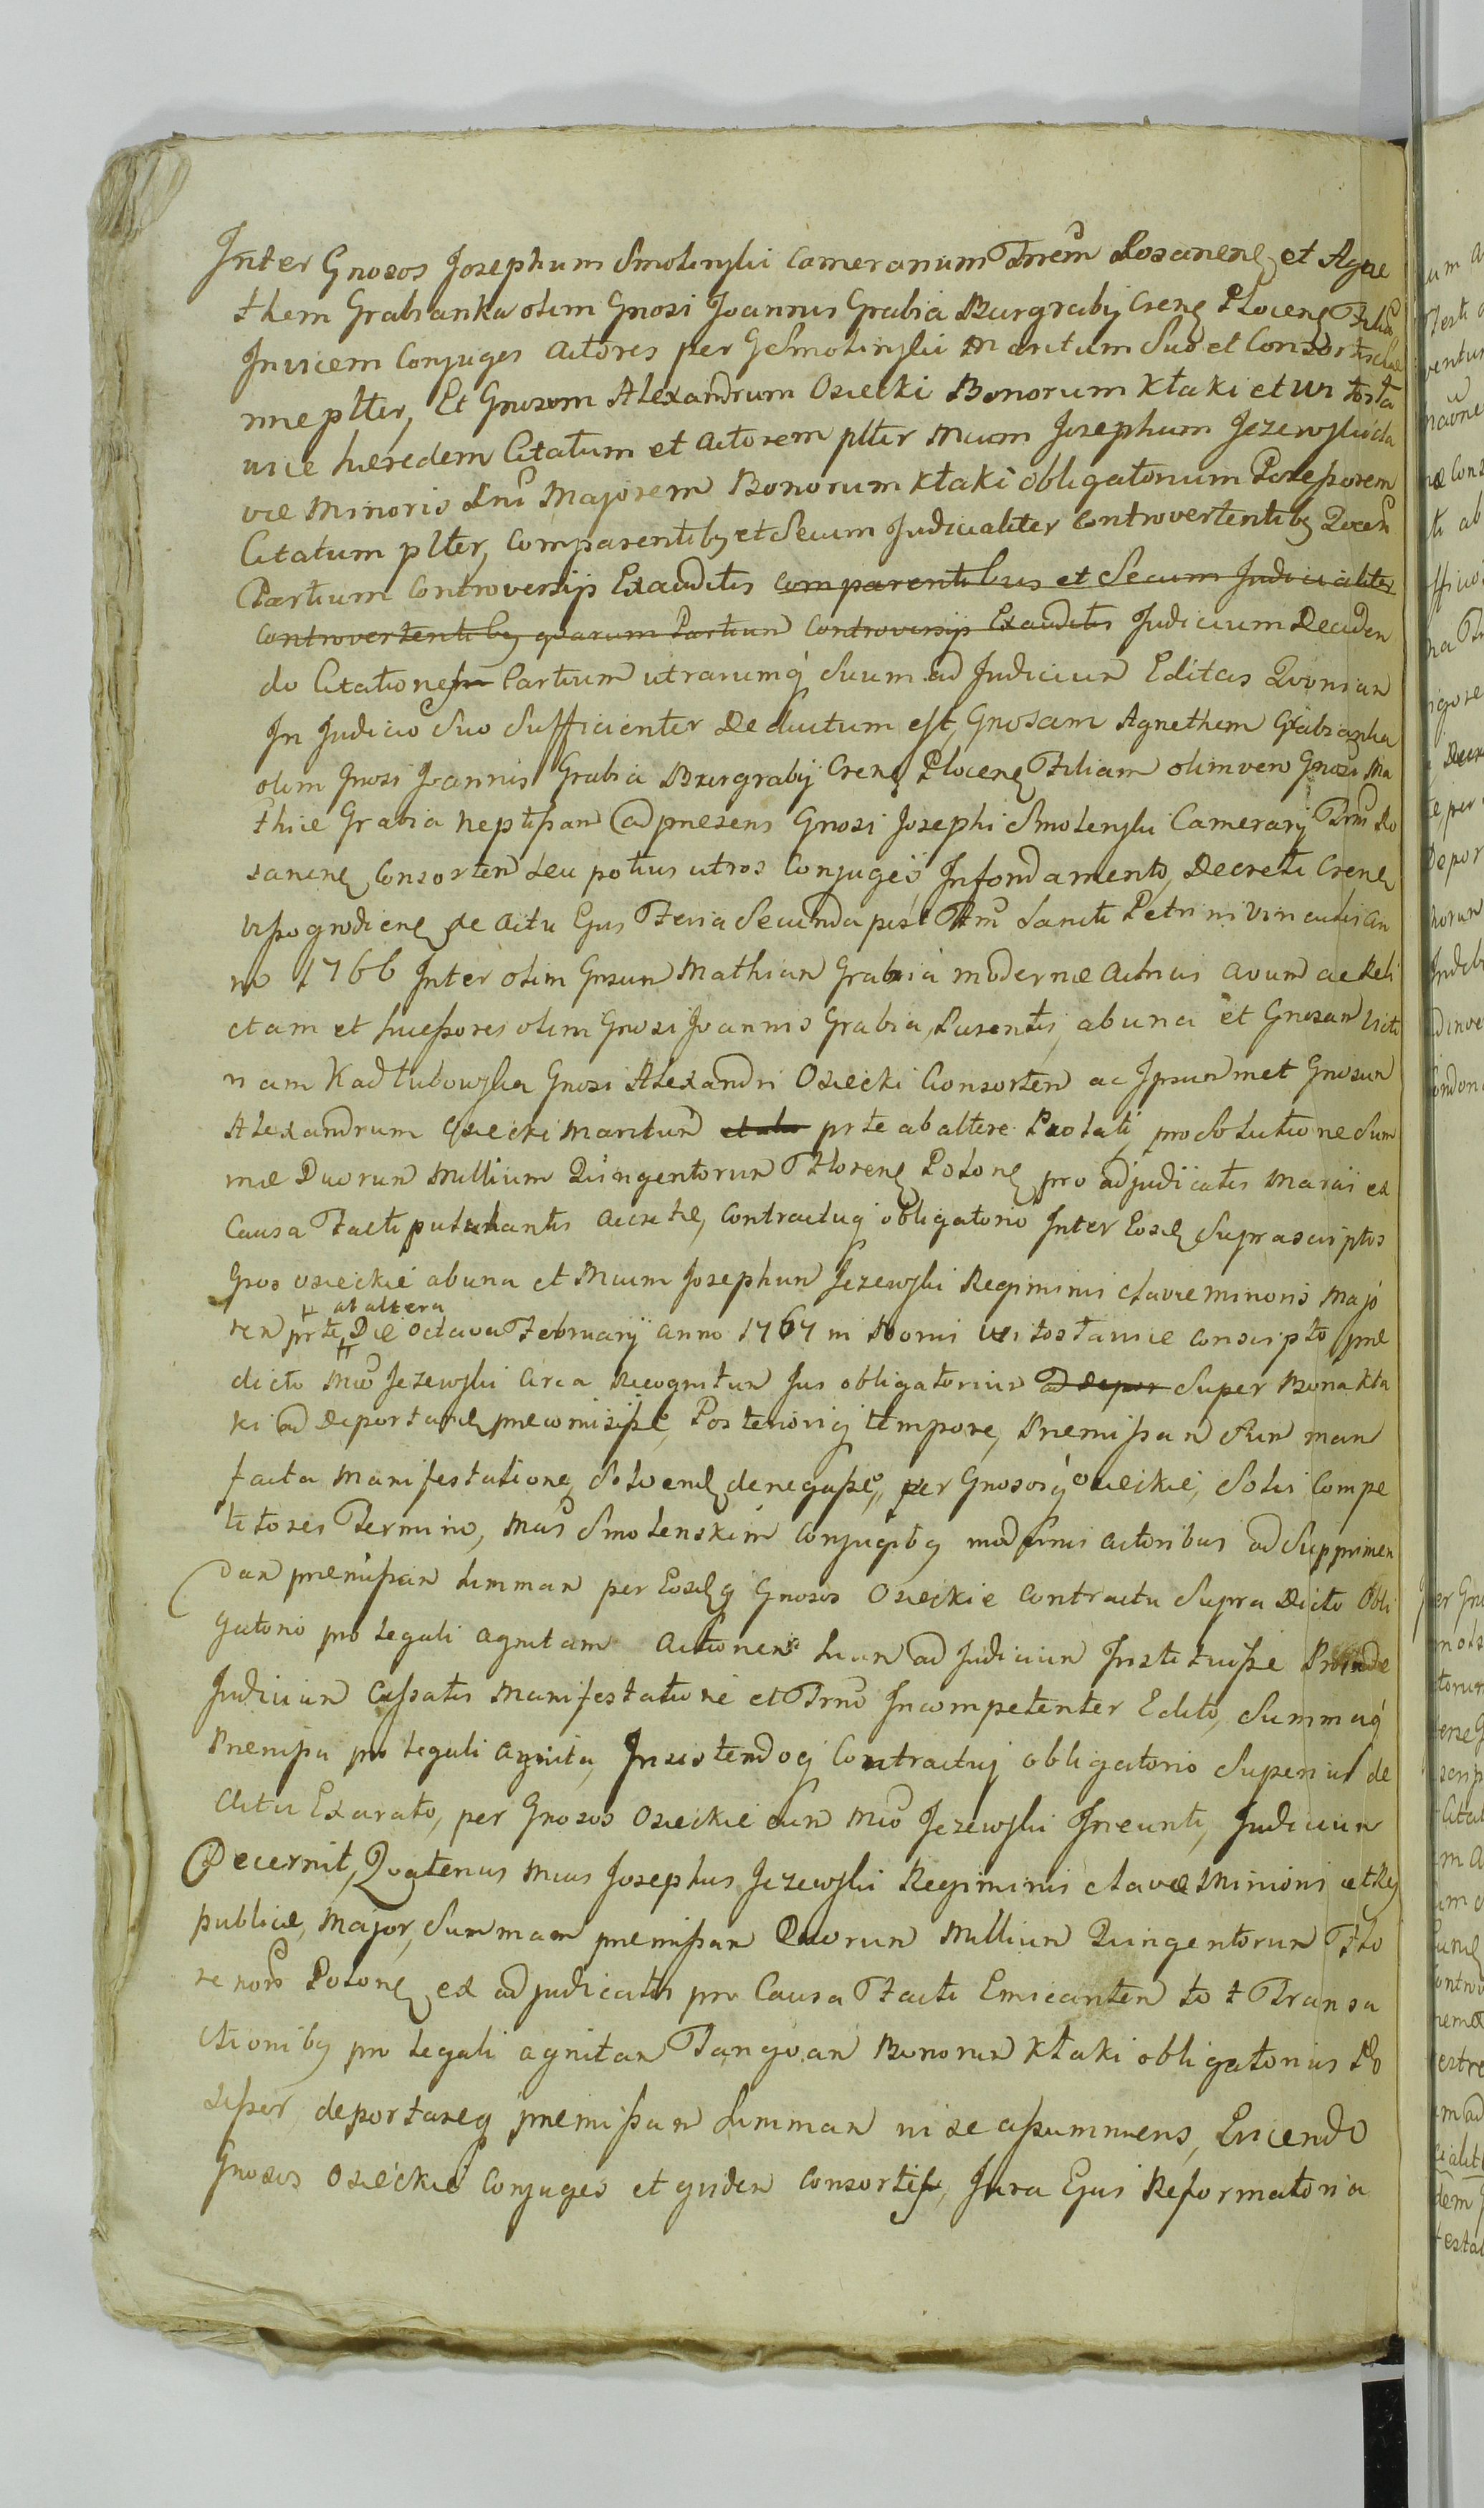 Inter Gnosos Josephum Smolenski Cameranum Trrem Rosanens et Agne
them Grabianka olim Gnosi Joannis Grabia Burgrabij Crens Plocens Filia
Invicem Conjuges actores per GSmolinski maritum Suo et Consortis
nne plter, Et Gnosum Alexandrum Osiecki Bonorum Ktaki et Witosta
wice hæredem Citatum et actorem plter Mcum Josephum Jezewski Cla
væ Minoris Majorem Bonorum Ktaki obligatorium Possessorem
Citatum plter, Comparentibg et Secum Judicialiter Controvertentibg
Partium Controversijs Exauditis comparentibus et Secum Judicialiter
Controvertentibg quarum Partium Controversijs Exauditis Judicium Deciden
do Citationes Partium utrarumq suum ad Judicium Editas Quoniam
In Judicio Suo Sufficienter Deductum est, Gnosam Agnethem Grabianka
olim Gnosi Joannis Grabia Burgrabij Crens Plocens Filiam olim vero Gnosi Ma
thiæ Grabia Neptissam ad præsens Gnosi Josephi Smolenski Camerarij Trris Ro
sanens Consortem seu potius utros Conjuges In fondamento, Decreti Crens
Vyssogrodiens de actu Ejus Feria Secunda post Ftm Sancti Petri in Vinculis An
no 1766 Inter olim Gnsum Mathiam Grabia modernæ actricis avum ac Reli
ctam et successores olim Gnosi Joannis Grabia, Parentis, ab una et Gnosam
nam Kadlubowska Gnosi Alexandri Osiecki Consortem ac Ipsummet Gnosum
Alexandrum Osiecki Maritum prte ab altera Prolati, pro Solutione Sum
mæ Duorum Millium Quingentorum Florens Polons pro adjudicatis ex
Causa Facti Contractuq obligatorio Inter Eosd Suprascriptos
Gnos Osieckie ab una et Mcum Josephum Jezewski Regiminis clavæ minoris Majo
ab altera
rem prte Die Octava Februarij anno 1767 in Bonis Witostawice conscripto præ
dicto Mco Jezewski circa Recognitum Jus obligatorium ad depor Super Bona Kta
ki ad deportand præcomisisse, Posteriorig tempore, Præmissam Sum man
facta Manifestatione, Solvend denegasse, per Gnososq Osieckie, Solis Compe
titores Termino, Smolenskim Conjugibg modernis actoribus ad Supprimen
dam præmissam summam per Eosdq Gnosos Osieckie Contractu Supra Dicto Obli
gatorio pro legali agnitam Actionem suam ad Judicium Instituisse Proinde
Judicium Cassatis Manifestatione et Trno Incompetenter Edito, Summaq
Præmissa pro legali agnita, Insistendoq Contractuj obligatorio Superius de
Actu Exarato, per Gnosos Osieckie cum Mco Jezewski Ineunti, Judicium
Decernit, Quatenus Mcus Josephus Jezewski Regiminis clavæ Minioris et Rei
publicæ, Major, Summam præmissam Duorum Millium Quingentorum Flo
renors Polons ex adjudicatis pro Causa Facti Emicantem tot Transa
ctionibg pro legali agnitam Tanquam Bonorum Ktaki obligatorius Po
ssessor, deportareq præmissam Summam in se assummens, Eviendo
Gnosos Osieckie Conjuges et quidem Consortis, Jura Ejus Reformatoria